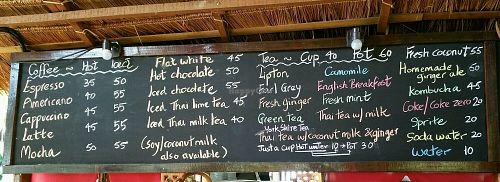 Coffee ~ Hot Iced
Espresso 35 50
Americano 40 55
Cappuccino 45 55
Latte 45 55
Mocha 50 55
Flat white 45
Hot chocolate 50
Iced chocolate 55
Iced Thai lime tea 45
Iced Thai milk tea 40
(Soy/coconut milk
also available)
Tea ~ Cup 40 Pot 60
Lipton Camomile
Earl Grey English Breakfast
Fresh ginger Fresh mint
Green Tea Thai tea w/milk
Yorkshire Tea
Thai tea w/coconut milk & ginger
Just a cup Hot water 10 → Pot 30
Fresh coconut 55
Homemade 50
ginger ale
Kombucha 45
Coke/Coke zero 20
Sprite 20
Soda water 20
Water 10